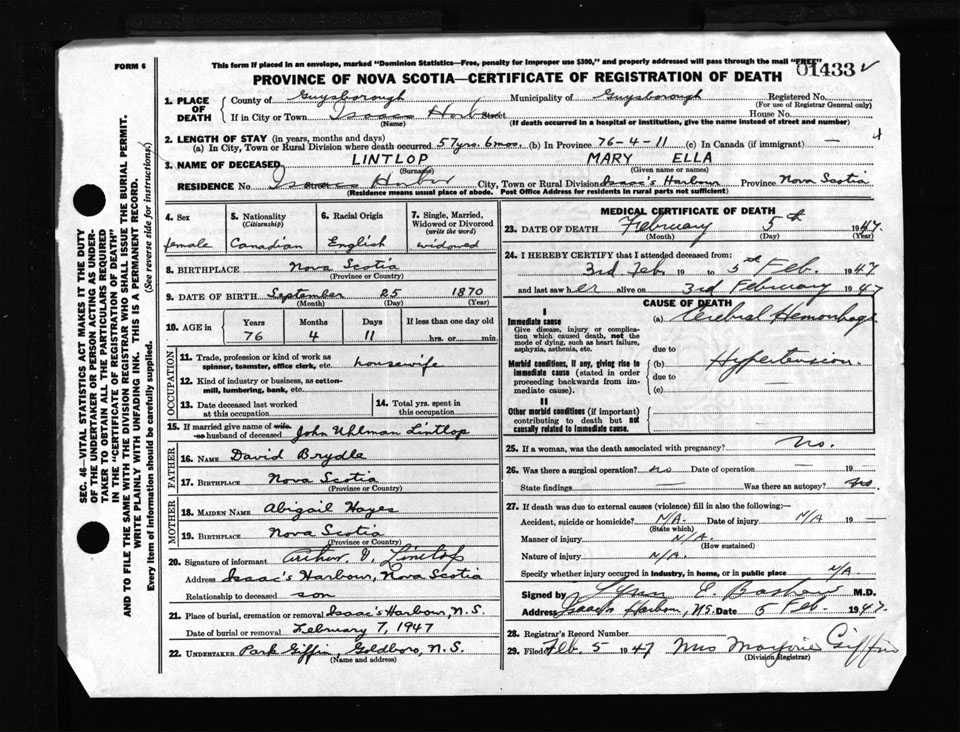 FORM 6
This form if placed in an envelope, marked "Dominion Statistics—Free, penalty for improper use $300," and properly addressed will pass through the mail "FREE"
01433
PROVINCE OF NOVA SCOTIA—CERTIFICATE OF REGISTRATION OF DEATH
1. PLACE OF DEATH
County of Guysborough Municipality of Guysborough Registered No.
(For use of Registrar General only)
If in City or Town Isaacs Harb Street House No.
(Name) (If death occurred in a hospital or institution, give the name instead of street and number)
2. LENGTH OF STAY (in years, months and days)
(a) In City, Town or Rural Division where death occurred 57 yrs. 6 mos. (b) In Province 76-4-11 (c) In Canada (if immigrant) —
3. NAME OF DECEASED LINTLOP MARY ELLA
(Surname) (Given name or names)
RESIDENCE No. Isaacs Harbor City, Town or Rural Division Isaac's Harbour Province Nova Scotia
(Residence means usual place of abode. Post Office Address for residents in rural parts not sufficient)
4. Sex female
5. Nationality (Citizenship) Canadian
6. Racial Origin English
7. Single, Married, Widowed or Divorced (write the word) widowed
8. BIRTHPLACE Nova Scotia
(Province or Country)
9. DATE OF BIRTH September 25 1870
(Month) (Day) (Year)
10. AGE in Years Months Days If less than one day old
76 4 11 hrs. or min.
OCCUPATION
11. Trade, profession or kind of work as spinner, teamster, office clerk, etc. housewife
12. Kind of industry or business, as cotton-mill, lumbering, bank, etc.
13. Date deceased last worked at this occupation
14. Total yrs. spent in this occupation
15. If married give name of wife or husband of deceased John Uhlman Lintlop
FATHER
16. NAME David Brydle
17. BIRTHPLACE Nova Scotia
(Province or Country)
MOTHER
18. MAIDEN NAME Abigail Hayes
19. BIRTHPLACE Nova Scotia
(Province or Country)
20. Signature of informant Arthor. Lintlop
Address Isaac's Harbour, Nova Scotia
Relationship to deceased son
21. Place of burial, cremation or removal Isaac's Harbour, N.S.
Date of burial or removal February 7, 1947
22. UNDERTAKER Park Giffin, Goldboro, N.S.
(Name and address)
MEDICAL CERTIFICATE OF DEATH
23. DATE OF DEATH February 5th 1947
(Month) (Day) (Year)
24. I HEREBY CERTIFY that I attended deceased from:
3rd Feb. 19 to 5th Feb. 1947
and last saw her alive on 3rd February 1947
CAUSE OF DEATH
I
Immediate cause
Give disease, injury or complication which caused death, not the mode of dying, such as heart failure, asphyxia, asthenia, etc.
(a) Cerebral Hemorrhage
due to
Morbid conditions, if any, giving rise to immediate cause (stated in order proceeding backwards from immediate cause).
(b) Hypertension.
due to —
(c)
II
Other morbid conditions (if important) contributing to death but not causally related to immediate cause.
—
25. If a woman, was the death associated with pregnancy? no.
26. Was there a surgical operation? no Date of operation — 19 —
State findings — Was there an autopsy? no.
27. If death was due to external causes (violence) fill in also the following:—
Accident, suicide or homicide? N/A. Date of injury N/A 19 —
(State which)
Manner of injury N/A.
(How sustained)
Nature of injury N/A.
Specify whether injury occurred in industry, in home, or in public place N/A
Signed by E. M.D.
Address Isaacs Harbour, N.S. Date 5 Feb. 1947.
28. Registrar's Record Number
29. Filed Feb. 5 1947 Mrs Marjorie Giffin
(Division Registrar)
SEC. 46—VITAL STATISTICS ACT MAKES IT THE DUTY
OF THE UNDERTAKER OR PERSON ACTING AS UNDER-
TAKER TO OBTAIN ALL THE PARTICULARS REQUIRED
IN THE "CERTIFICATE OF REGISTRATION OF DEATH"
AND TO FILE THE SAME WITH THE DIVISION REGISTRAR WHO SHALL ISSUE THE BURIAL PERMIT.
WRITE PLAINLY WITH UNFADING INK. THIS IS A PERMANENT RECORD.
Every item of information should be carefully supplied. (See reverse side for instructions.)